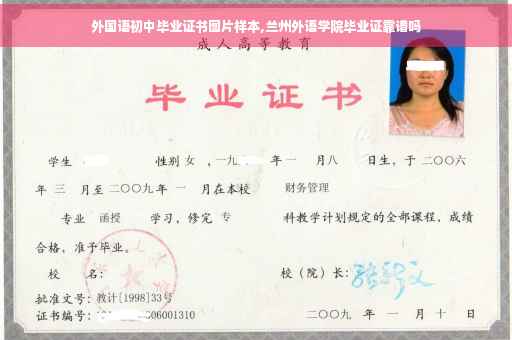 外国语初中毕业证书图片样本,兰州外语学院毕业证靠谱吗
成人高等教育
毕业证书
学生 性别 女 ,一九 年 一 月八 日生,于 二〇〇六
年 三 月至 二〇〇九 年 一 月在本校 财务管理
专业 函授 学习,修完 专 科教学计划规定的全部课程,成绩
合格,准予毕业。
校 名: 校(院)长:
批准文号: 教计[1998]33号
证书编号: 06001310 二〇〇九 年 一 月 十 日